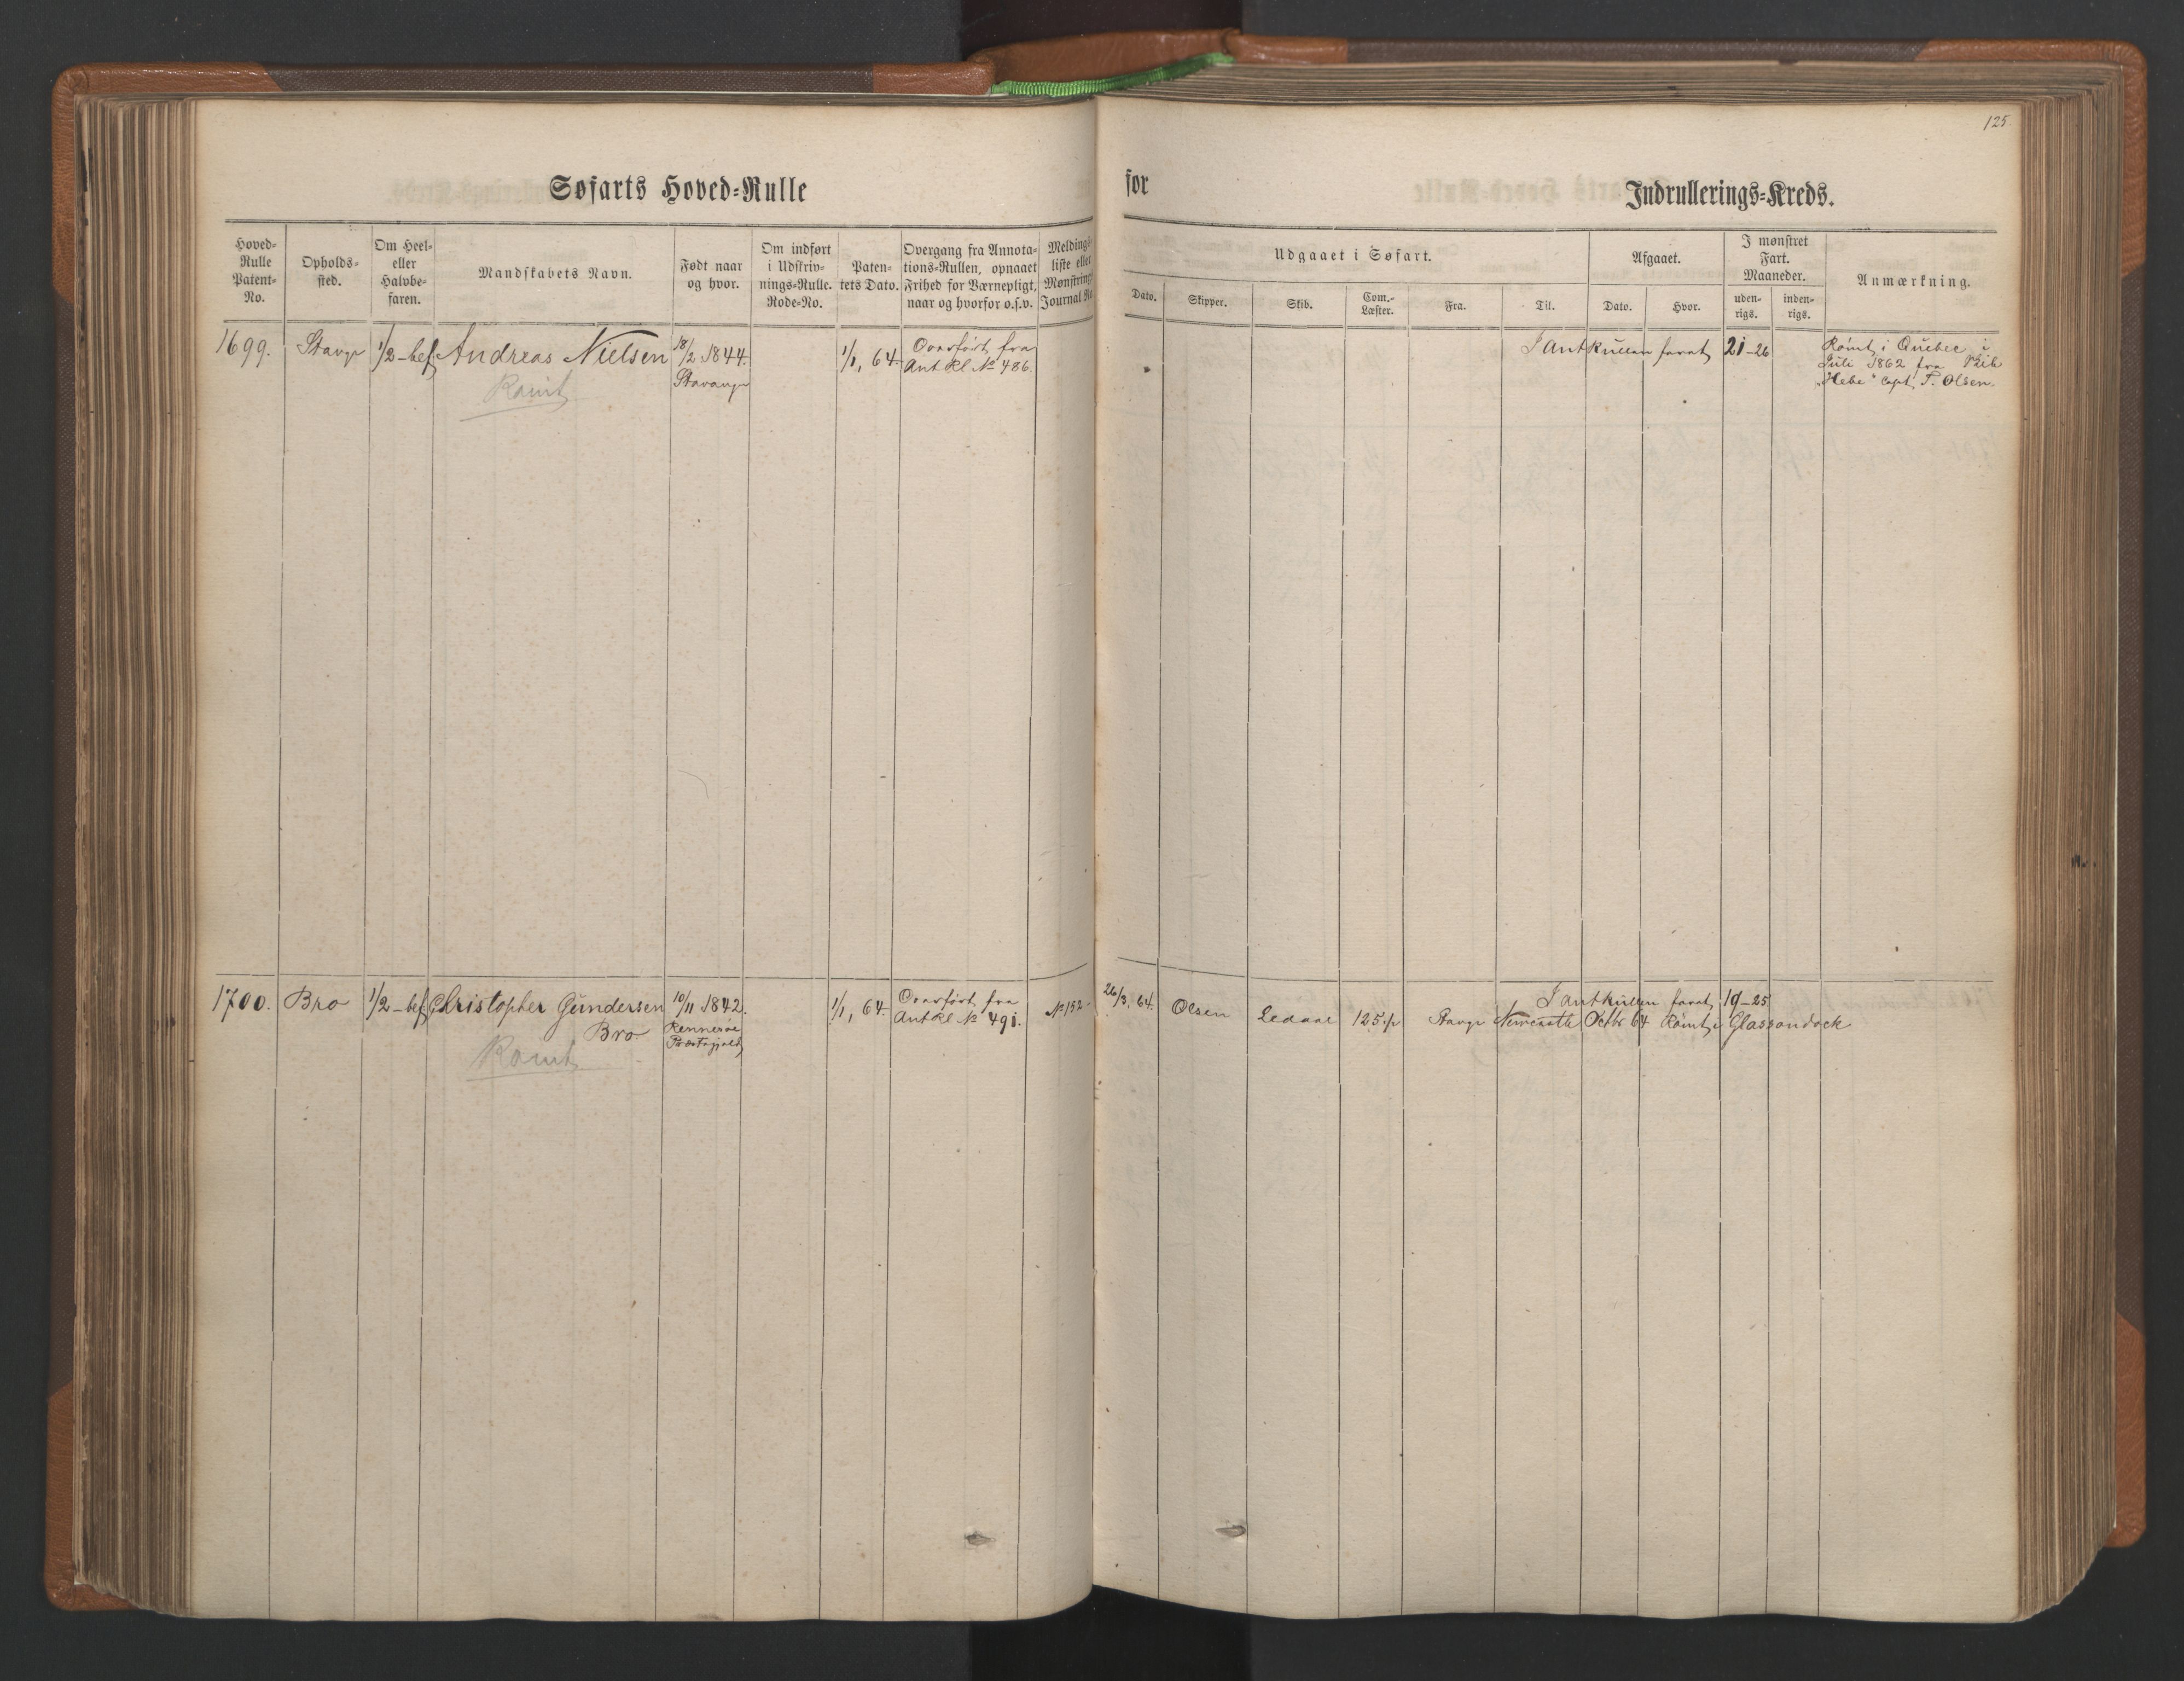 125.
Søfarts Hoved-Rulle for Indrullerings-Kreds.
Hoved-Rulle Patent-No.
Opholds-sted.
Om Heel- eller Halvbe-faren.
Mandskabets Navn.
Født naar og hvor.
Om indført i Udskriv-nings-Rulle. Rode-No.
Paten-tets Dato.
Overgang fra Annota-tions-Rullen, opnaaet Frihed for Værnepligt, naar og hvorfor o.s.v.
Meldings-liste eller Mønstrings Journal No
Udgaaet i Søfart.
Dato.
Skipper.
Skib.
Com.-Læster.
Fra.
Til.
Afgaaet.
Dato.
Hvor.
I mønstret Fart. Maaneder.
uden-rigs.
inden-rigs.
Anmærkning.
1699. Stavgr 1/2-bef Andreas Nielsen 18/2 1844. 1/1, 64. Overført fra I antRullen faret 21-26 Rømt i Quebec i
Rømt Stavanger Ant Rl No 486. Juli 1862 fra Skib
"Hebe" Capt, T. Olsen.
1700. Bro 1/2-bef Christopher Gundersen 10/11 1842. 1/1, 64. Overført fra No 152 26/3, 64. Olsen Ledaal 125 I antRullen faret 19-25
Bro Rennesøe Ant Rl No 491. Stavgr Newcastle Octbr 64 Rømt i Glassondock
Rømt Præstegjeld